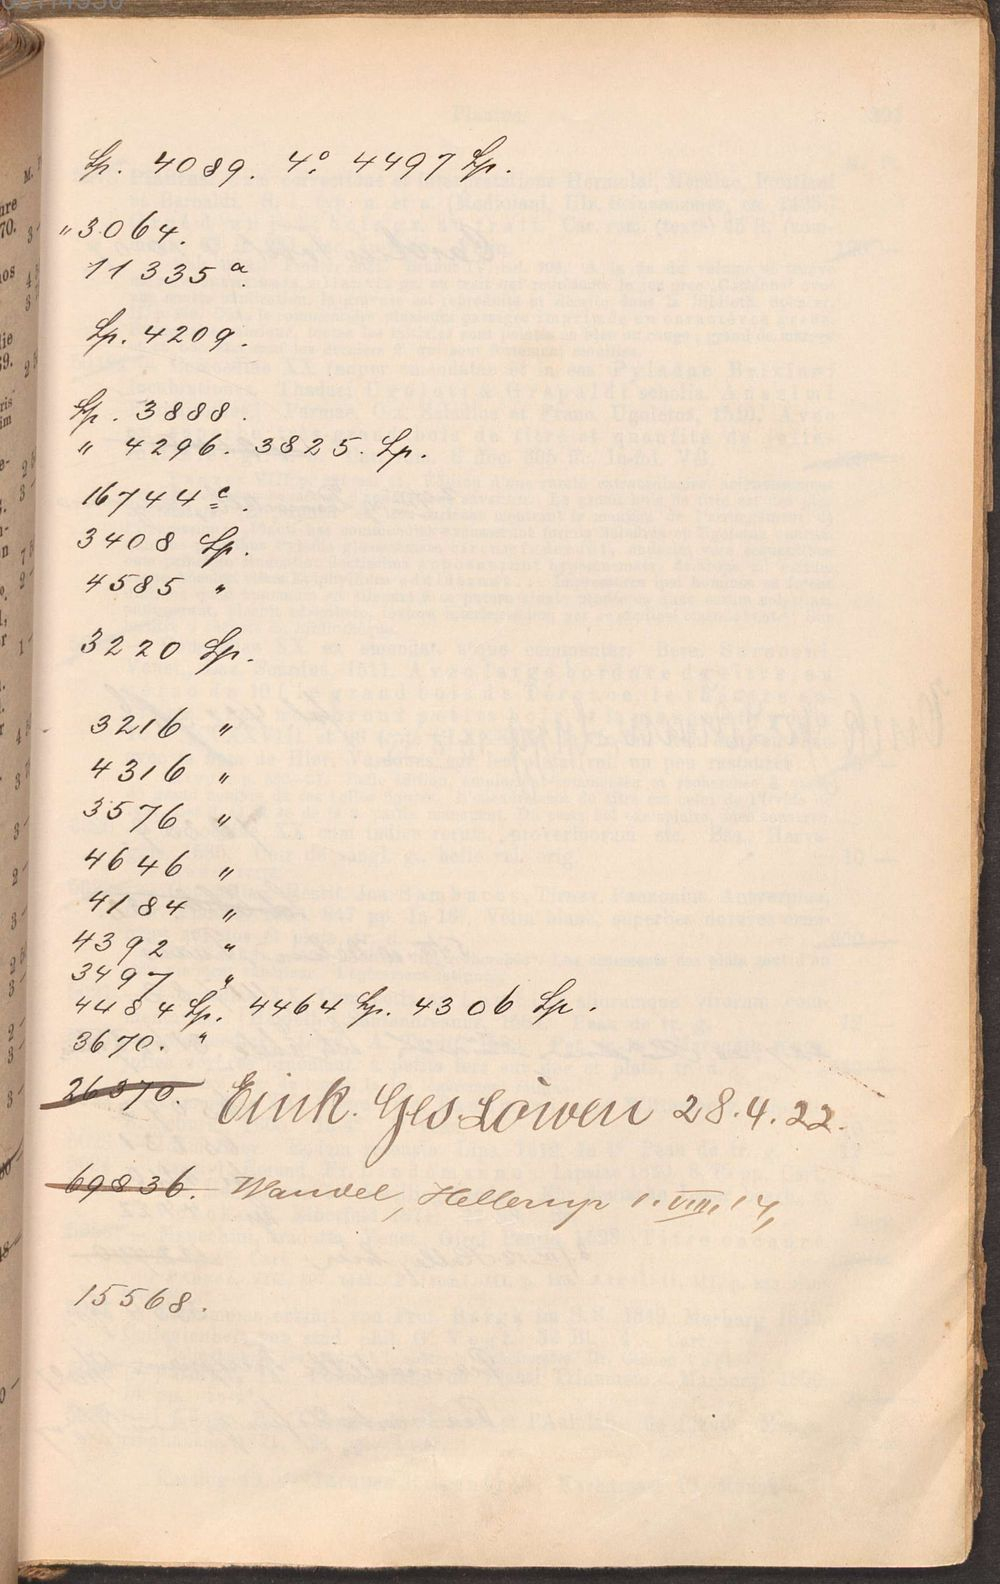 Lp. 4089. 4° 4497 Lp.
" 3064.
11335 a.
Lp. 4209.
Lp. 3888.
" 4296. 3825. Lp.
16744 c.
3408 Lp.
4585 "
3220 Lp.
3216 "
4316 "
3576 "
4646 "
4184 "
4392 "
3497 "
4484 Lp. 4464 Lp. 4306 Lp.
3670. "
26370. Eink. Ges. Löwen 28.4.22.
69836. Wandel, Hellerup 1. VIII. 14,
15568.